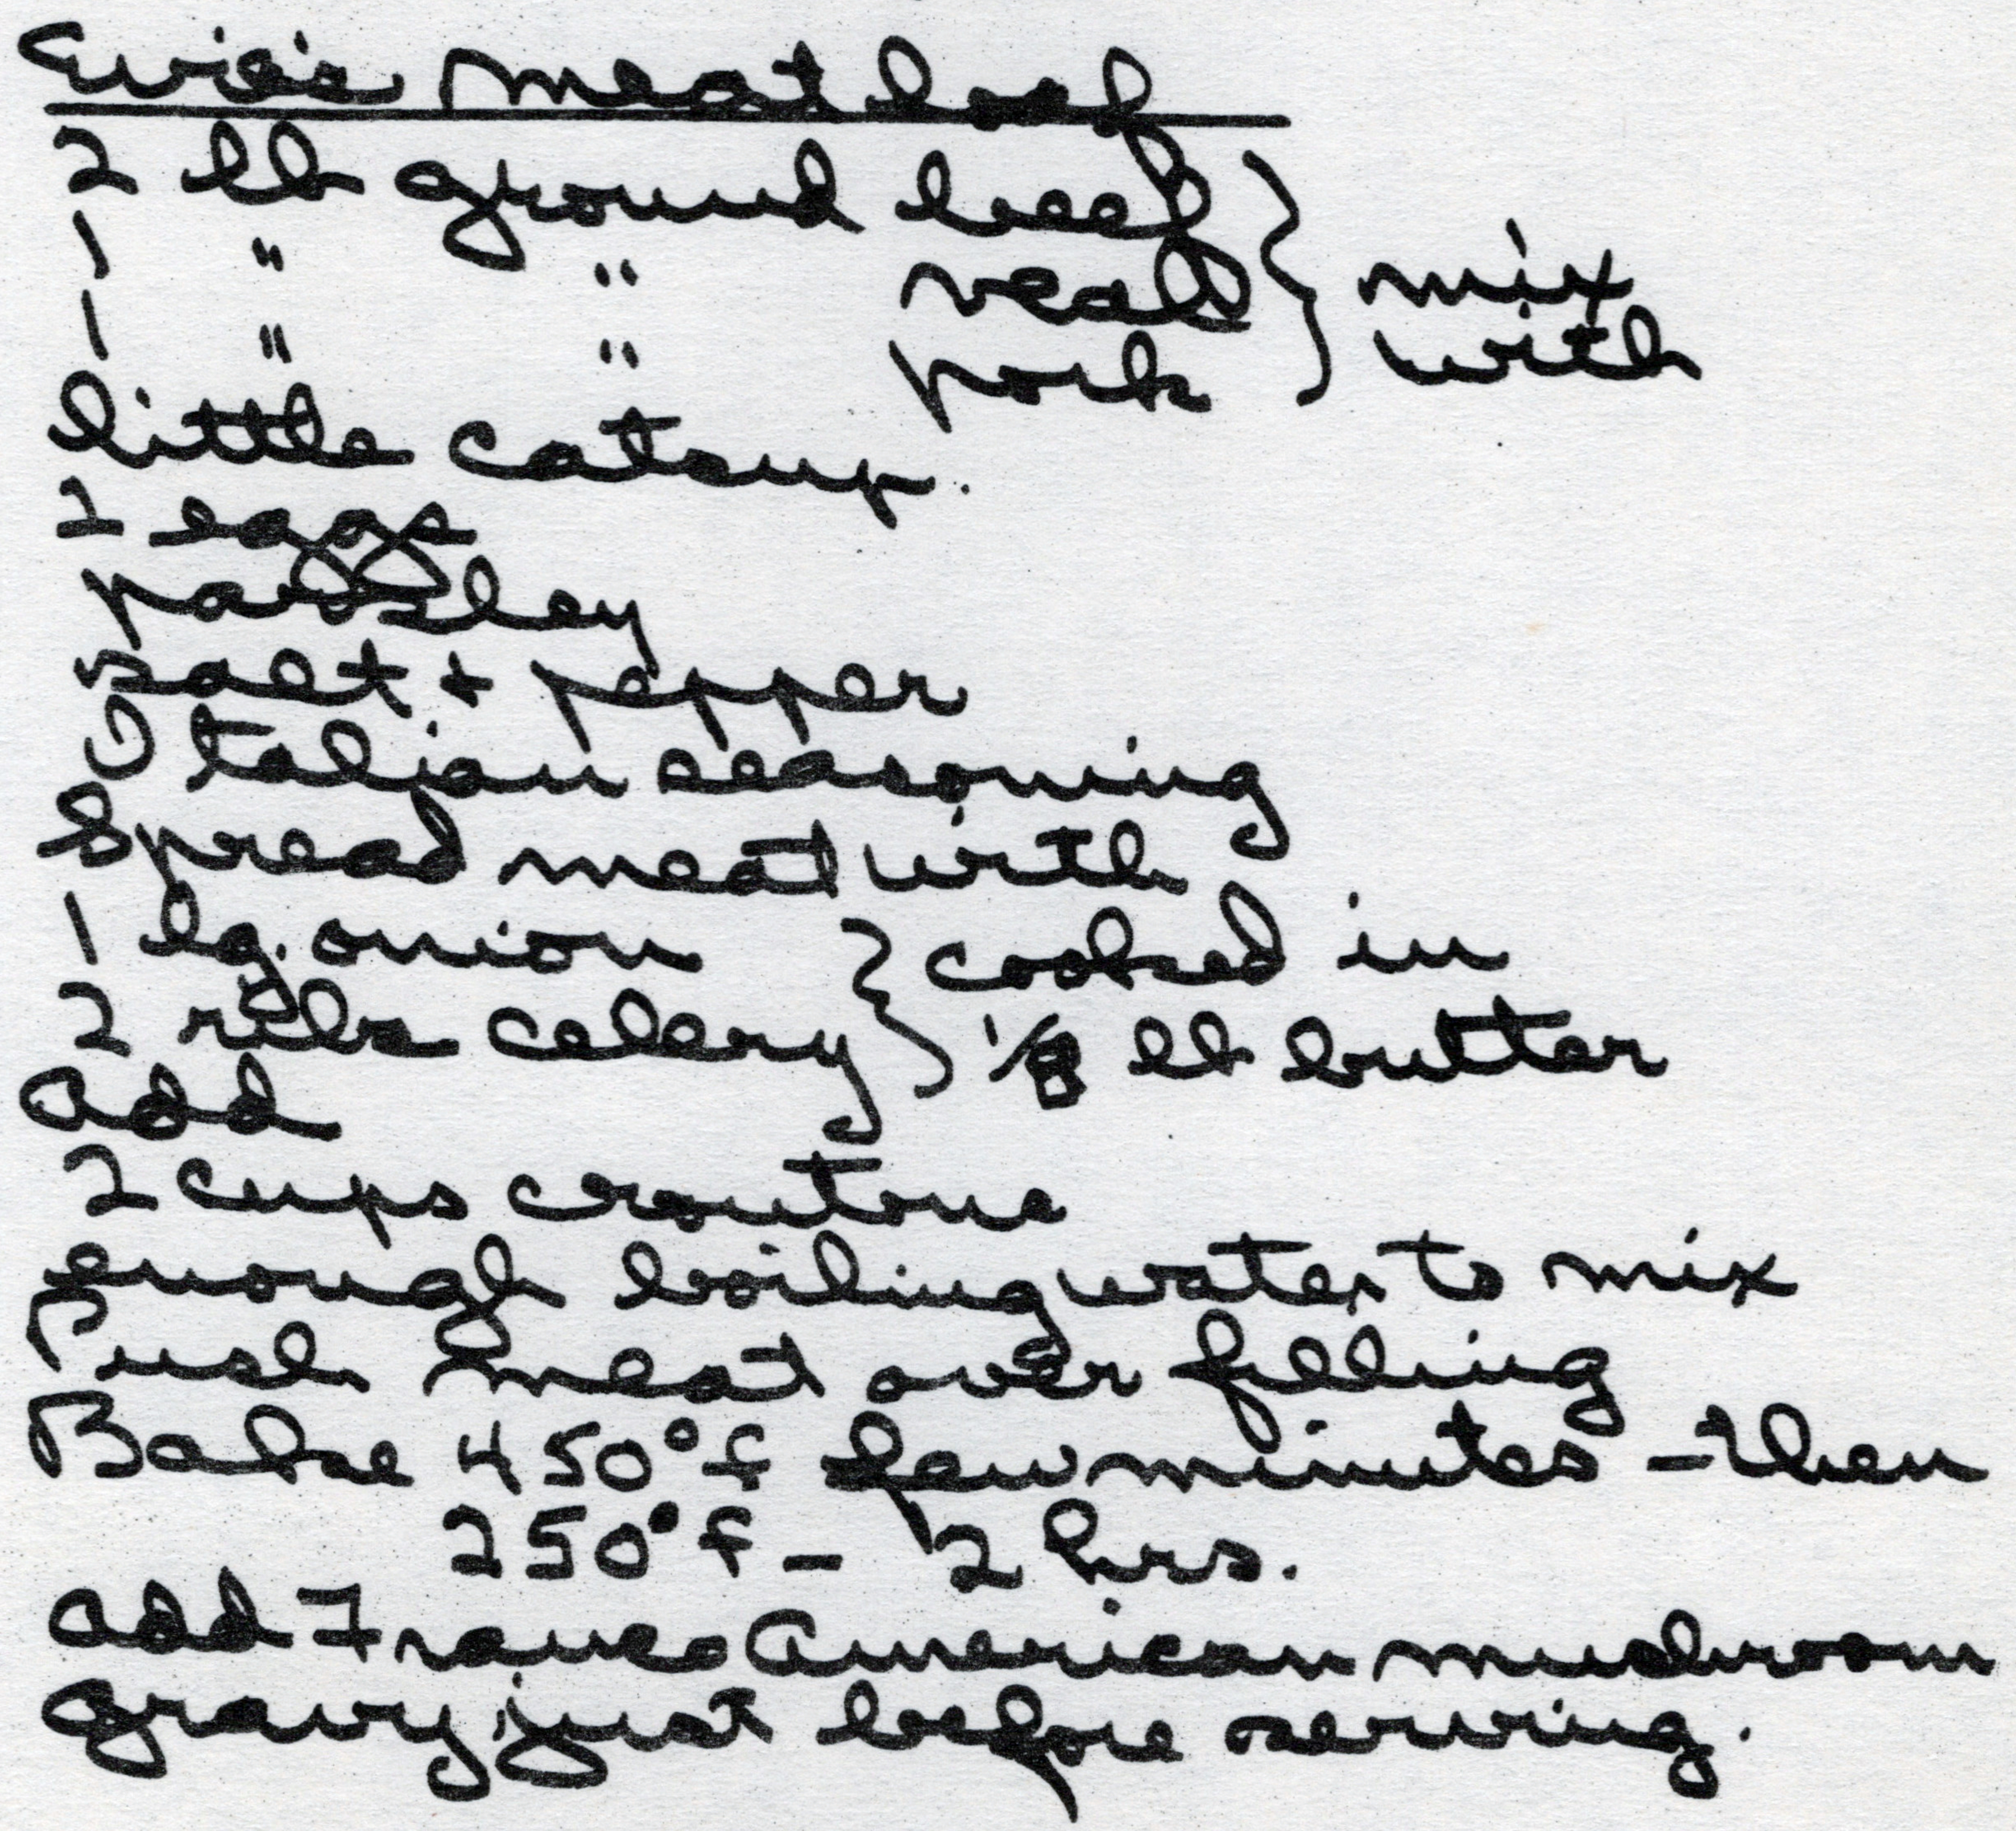 Evie's meat loaf
2 lb ground beef } mix
1 " " veal } with
1 " " pork
little catsup.
2 eggs
parsley
salt + pepper
Italian seasoning
Spread meat with
1 lg. onion } cooked in
2 ribs celery } 1/8 lb butter
add
2 cups croutons
enough boiling water to mix
Push meat over filling
Bake 450°f few minutes - then
250°f - 2 hrs.
add Franco American mushroom
gravy just before serving.